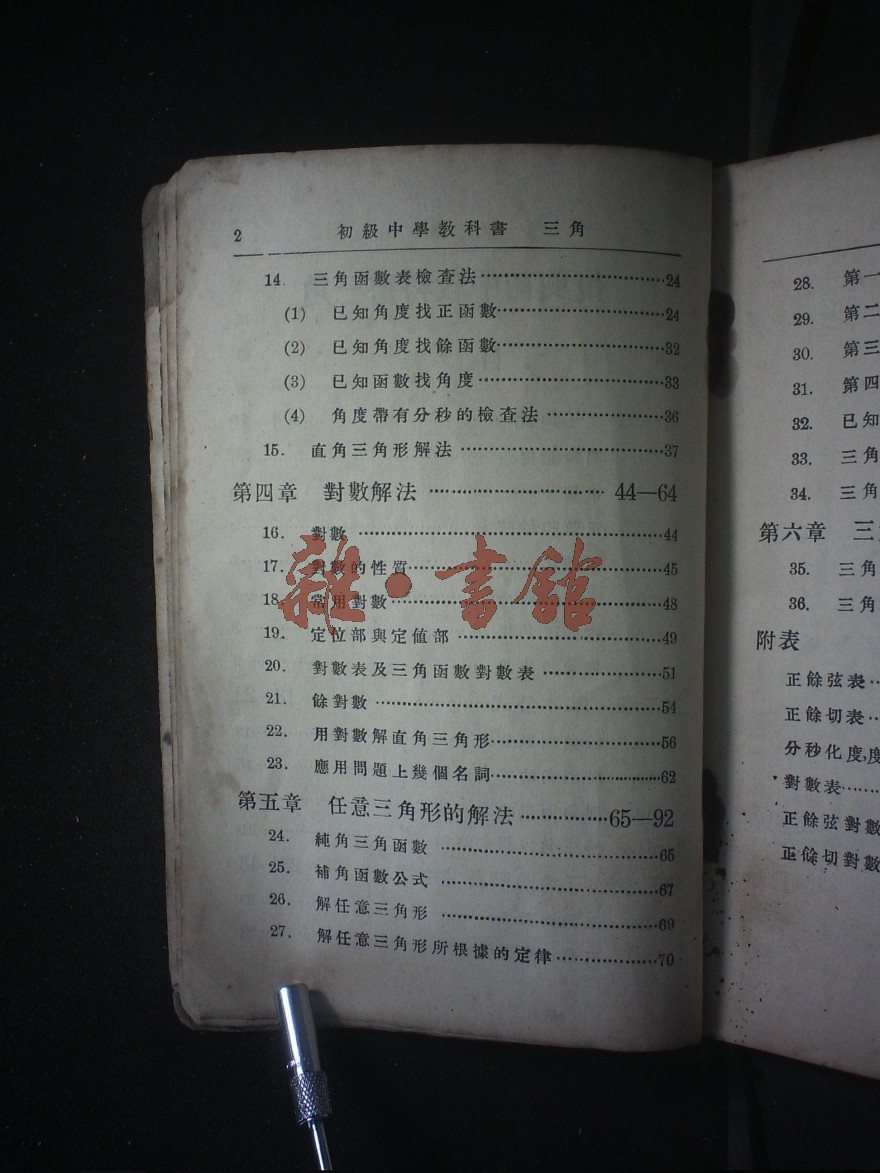 2 初級中學教科書 三角
14. 三角函數表檢查法……24
(1) 已知角度找正函數……24
(2) 已知角度找餘函數……32
(3) 已知函數找角度……33
(4) 角度帶有分秒的檢查法……36
15. 直角三角形解法……37
第四章 對數解法……44—64
16. 對數……44
17. 對數的性質……45
18. 常用對數……48
19. 定位部與定值部……49
20. 對數表及三角函數對數表……51
21. 餘對數……54
22. 用對數解直角三角形……56
23. 應用問題上幾個名詞……62
第五章 任意三角形的解法……65—92
24. 純角三角函數……65
25. 補角函數公式……67
26. 解任意三角形……69
27. 解任意三角形所根據的定律……70
雜·書館
28. 第一
29. 第二
30. 第三
31. 第四
32. 已知
33. 三角
34. 三角
第六章 三
35. 三角
36. 三角
附表
正餘弦表
正餘切表
分秒化度,度
對數表……
正餘弦對數
正餘切對數